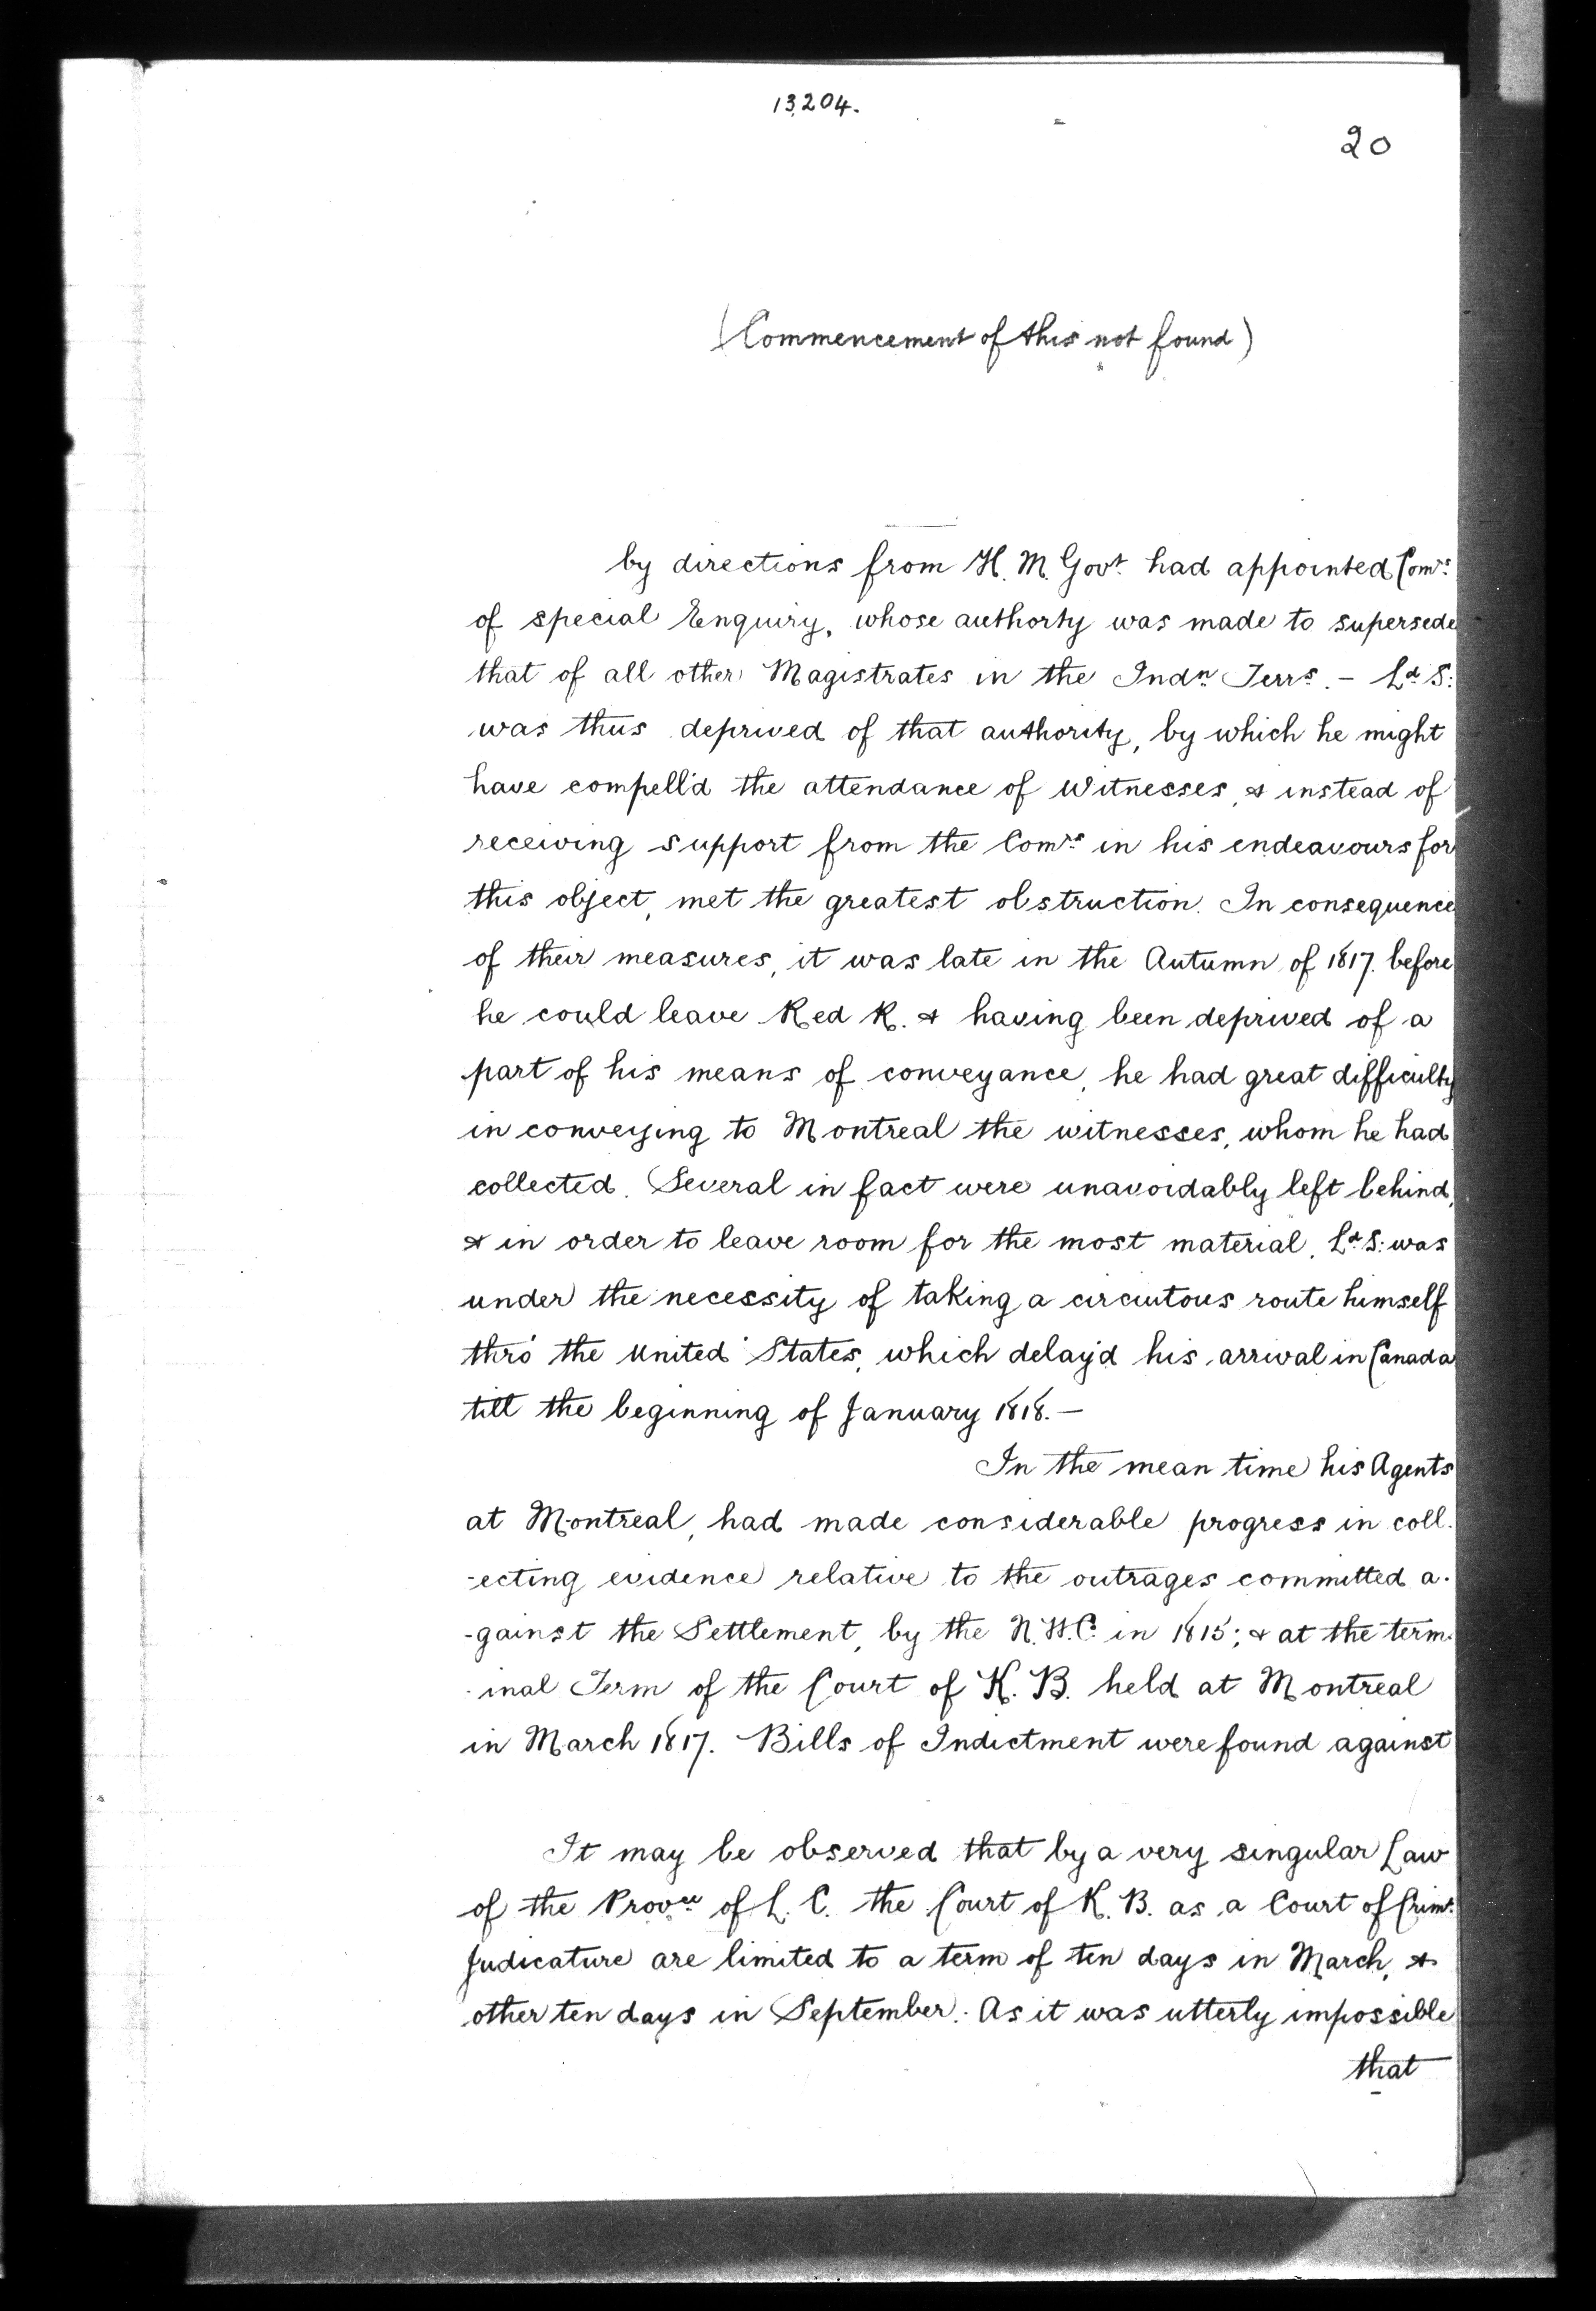 13,204.
20
(Commencement of this not found)
by directions from H. M. Govt. had appointed Comrs.
of special Enquiry, whose authorty was made to supersede
that of all other Magistrates in the Indn Terrs. - Ld S:
was thus deprived of that authority, by which he might
have compell'd the attendance of Witnesses, & instead of
receiving support from the Comrs in his endeavours for
this object, met the greatest obstruction. In consequence
of their measures, it was late in the Autumn of 1817. before
he could leave Red R. & having been deprived of a
part of his means of conveyance, he had great difficulty
in conveying to Montreal the witnesses, whom he had
collected. Several in fact were unavoidably left behind,
& in order to leave room for the most material, Ld S: was
under the necessity of taking a circuitous route himself
thro' the United States, which delay'd his arrival in Canada
till the beginning of January 1818. —
In the mean time his Agents
at Montreal, had made considerable progress in coll-
-ecting evidence relative to the outrages committed a-
-gainst the Settlement, by the N.W.C. in 1815; & at the term-
-inal Term of the Court of K. B. held at Montreal
in March 1817. Bills of Indictment were found against
It may be observed that by a very singular Law
of the Provce of L. C. the Court of K. B. as a Court of Criml.
Judicature are limited to a term of ten days in March, &
other ten days in September. As it was utterly impossible
that